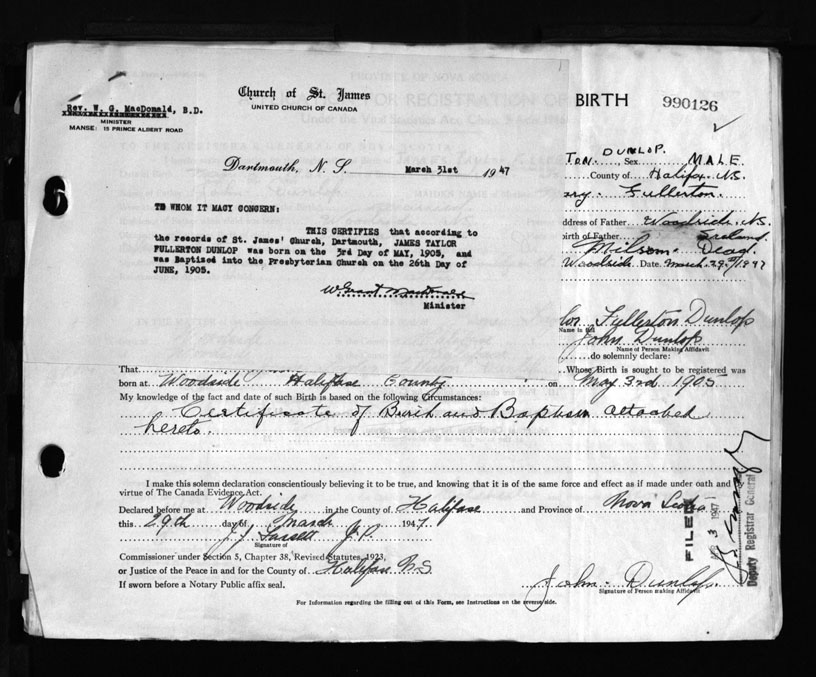 Church of St. James
UNITED CHURCH OF CANADA
Rev. W. G. MacDonald, B.D.
MINISTER
MANSE: 15 PRINCE ALBERT ROAD
Dartmouth, N. S. March 31st 1947
TO WHOM IT MAGY CONCERN:
THIS CERTIFIES that according to
the records of St. James' Church, Dartmouth, JAMES TAYLOR
FULLERTON DUNLOP was born on the 3rd Day of MAY, 1905, and
was Baptized into the Presbyterian Church on the 26th Day of
JUNE, 1905.
W Grant MacDonald
Minister
BIRTH 990126
TON. DUNLOP. Sex MALE
County of Halifax N.S.
ary. Fullerton.
ddress of Father Woodside N.S.
irth of Father Ireland
Woodside Date March 29th/1947
lor Fullerton Dunlop
Name in full
John Dunlop
Name of Person Making Affidavit
do solemnly declare:
That Whose Birth is sought to be registered was
born at Woodside Halifax County on May 3rd 1905
My knowledge of the fact and date of such Birth is based on the following Circumstances:
Certificate of Birth and Baptism attached
hereto.
I make this solemn declaration conscientiously believing it to be true, and knowing that it is of the same force and effect as if made under oath and by
virtue of The Canada Evidence Act.
Declared before me at Woodside in the County of Halifax and Province of Nova Scotia
this 29th day of March 1947.
J.P.
Signature of
Commissioner under Section 5, Chapter 38, Revised Statutes, 1923,
or Justice of the Peace in and for the County of Halifax N.S.
If sworn before a Notary Public affix seal.
John Dunlop.
Signature of Person making Affidavit
For Information regarding the filling out of this Form, see Instructions on the reverse side.
FILED
3 1947
Deputy Registrar General